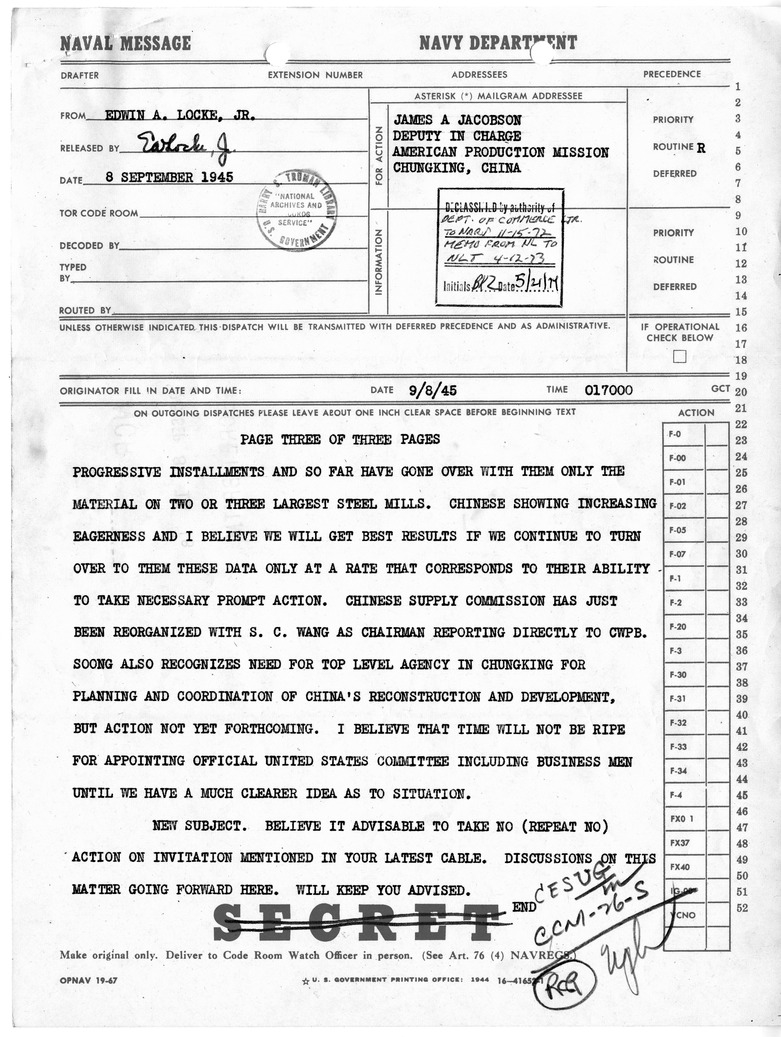 NAVAL MESSAGE NAVY DEPARTMENT
DRAFTER EXTENSION NUMBER ADDRESSEES PRECEDENCE
FROM EDWIN A. LOCKE, JR.
RELEASED BY
DATE 8 SEPTEMBER 1945
TOR CODE ROOM
DECODED BY
TYPED
BY
ROUTED BY
HARRY S. TRUMAN LIBRARY
"NATIONAL
ARCHIVES AND
SERVICE"
U.S. GOVERNMENT
FOR ACTION
INFORMATION
ASTERISK (*) MAILGRAM ADDRESSEE
JAMES A JACOBSON
DEPUTY IN CHARGE
AMERICAN PRODUCTION MISSION
CHUNGKING, CHINA
DECLASSIFIED by authority of
DEPT. OF COMMERCE LTR.
TO NARS 11-15-72
MEMO FROM NL TO
NLT 4-12-73
Initials Date
PRIORITY
ROUTINE R
DEFERRED
PRIORITY
ROUTINE
DEFERRED
UNLESS OTHERWISE INDICATED THIS DISPATCH WILL BE TRANSMITTED WITH DEFERRED PRECEDENCE AND AS ADMINISTRATIVE.
IF OPERATIONAL
CHECK BELOW
ORIGINATOR FILL IN DATE AND TIME: DATE 9/8/45 TIME 017000 GCT
ON OUTGOING DISPATCHES PLEASE LEAVE ABOUT ONE INCH CLEAR SPACE BEFORE BEGINNING TEXT
ACTION
PAGE THREE OF THREE PAGES
PROGRESSIVE INSTALLMENTS AND SO FAR HAVE GONE OVER WITH THEM ONLY THE
MATERIAL ON TWO OR THREE LARGEST STEEL MILLS. CHINESE SHOWING INCREASING
EAGERNESS AND I BELIEVE WE WILL GET BEST RESULTS IF WE CONTINUE TO TURN
OVER TO THEM THESE DATA ONLY AT A RATE THAT CORRESPONDS TO THEIR ABILITY
TO TAKE NECESSARY PROMPT ACTION. CHINESE SUPPLY COMMISSION HAS JUST
BEEN REORGANIZED WITH S. C. WANG AS CHAIRMAN REPORTING DIRECTLY TO CWPB.
SOONG ALSO RECOGNIZES NEED FOR TOP LEVEL AGENCY IN CHUNGKING FOR
PLANNING AND COORDINATION OF CHINA'S RECONSTRUCTION AND DEVELOPMENT,
BUT ACTION NOT YET FORTHCOMING. I BELIEVE THAT TIME WILL NOT BE RIPE
FOR APPOINTING OFFICIAL UNITED STATES COMMITTEE INCLUDING BUSINESS MEN
UNTIL WE HAVE A MUCH CLEARER IDEA AS TO SITUATION.
NEW SUBJECT. BELIEVE IT ADVISABLE TO TAKE NO (REPEAT NO)
ACTION ON INVITATION MENTIONED IN YOUR LATEST CABLE. DISCUSSIONS ON THIS
MATTER GOING FORWARD HERE. WILL KEEP YOU ADVISED.
END
SECRET
CCM-26-S
Make original only. Deliver to Code Room Watch Officer in person. (See Art. 76 (4) NAVREGS.)
OPNAV 19-67
☆ U. S. GOVERNMENT PRINTING OFFICE: 1944
F-0
F-00
F-01
F-02
F-05
F-07
F-1
F-2
F-20
F-3
F-30
F-31
F-32
F-33
F-34
F-4
FX0 1
FX37
FX40
IG-00
VCNO
1
2
3
4
5
6
7
8
9
10
11
12
13
14
15
16
17
18
19
20
21
22
23
24
25
26
27
28
29
30
31
32
33
34
35
36
37
38
39
40
41
42
43
44
45
46
47
48
49
50
51
52